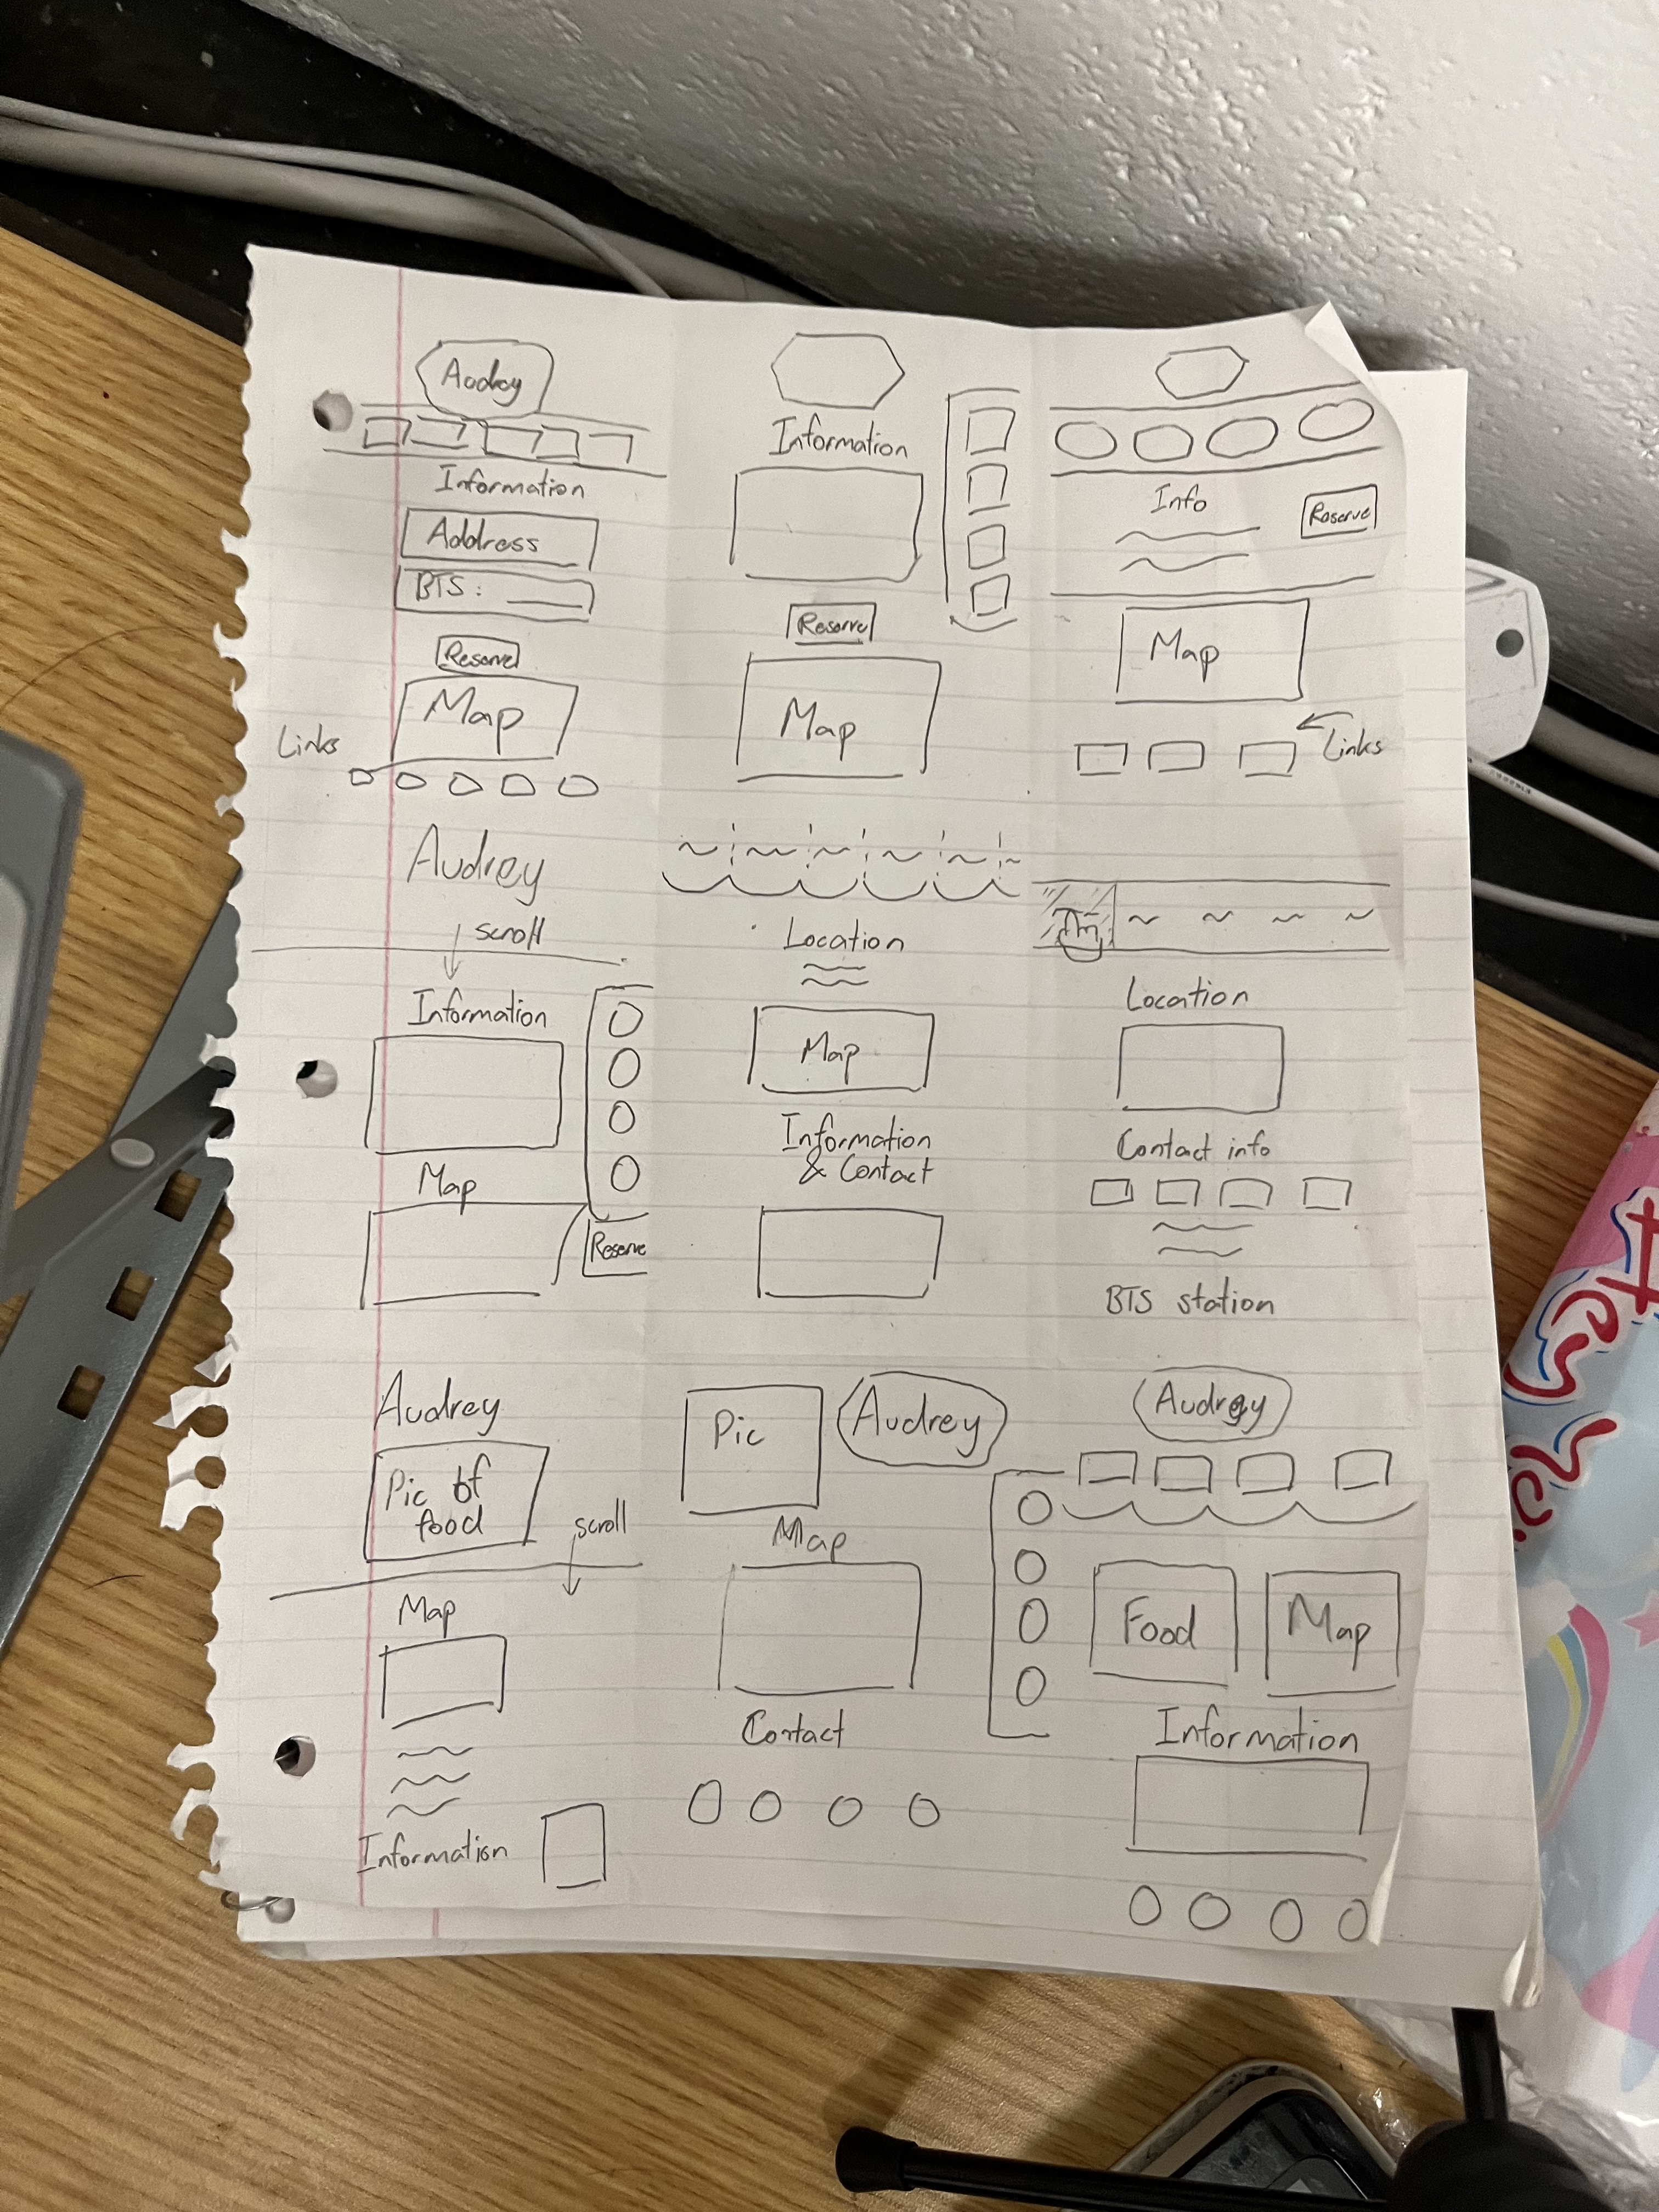 Audrey
Information
Address
BTS:
Reserve
Map
Links
Information
Reserve
Map
Info
Reserve
Map
Links
Audrey
scroll
Information
Map
Reserve
Location
Map
Information
& Contact
Location
Contact info
BTS station
Audrey
Pic of
food
scroll
Map
Information
Pic
Audrey
Map
Contact
Audrey
Food
Map
Information